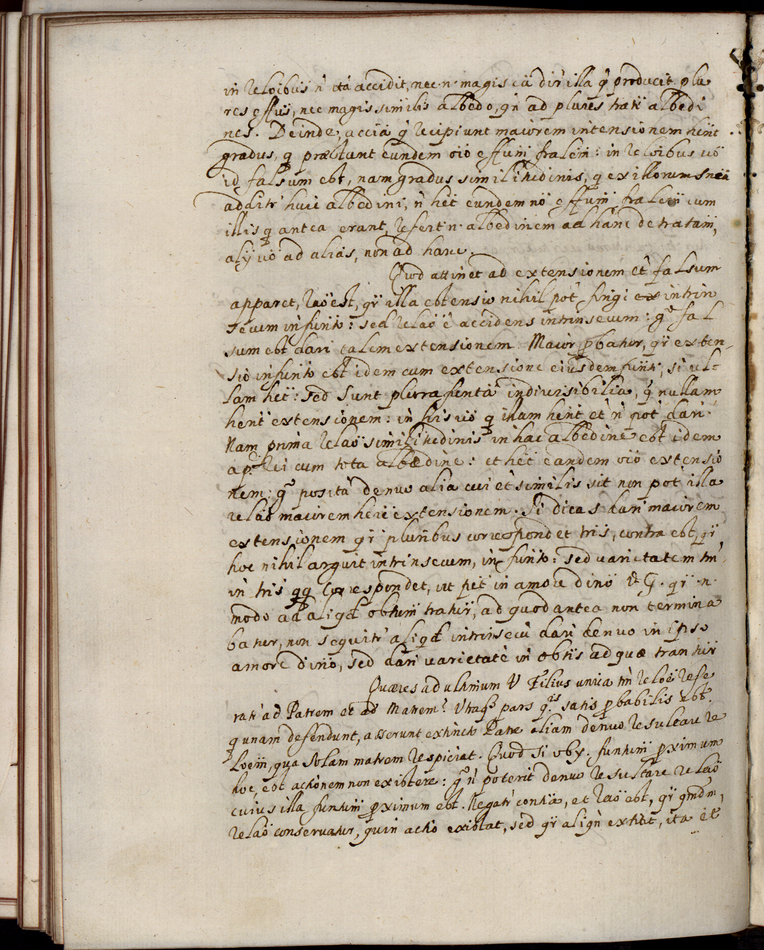 in rel̃oibus ñ ita accidit, nec n. magis cã dir̃ illa q̃ producit plu
res eff̃us, nec magis similis albedo, q̃ ad plures trat̃r albedi
nes. Deinde, accĩa q̃ recipiunt maiorem intensionem hent
gradus, q̃ præstant eundem oĩo eff̃um fralem: in rel̃oibus uõ
id falsum est, nam gradus similitudinis, q̃ ex illorum snĩa
additr̃ huic albedini, ñ het eundem nõ eff̃um fralem cum
illis q̃ antea erant, refert n. albedinem ad hanc de tratam,
alij uõ ad alias, non ad hanc.
Quod attinet ad extensionem et̃ falsum
apparet, rãõ est, q̃r illa extensio nihil pot̃ fingi ex intrin
secum in funto: sed rel̃ao ẽ accidens intrinsecum: gõ fal
sum est dari talem extensionem. Maior p̃batur, q̃r exten-
sio in funto est idem cum extensione eiusdem funti, si ul-
lam het: sed sunt plura funta indiuisibilia, q̃ nullam
hent extensionem: in his uõ q̃ illam hent et̃ ñ pot̃ dari.
Nam prima rel̃ao similitudinis in hac albedine est idem
a p. rei cum tota albedine: et het eandem oĩo extensio
nem: gõ posita denuo alia cui et̃ similis sit non pot̃ illa
rel̃ao maiorem here extensionem. Si dicas dari maiorem
extensionem q̃r pluribus correspondet tris, contra est, q̃r
hoc nihil arguit intrinsecum, in funto: sed uarietatem tm̃
in tris qq̃ correspondet, ut pet̃ in amore diũo V. G. q̃r n.
modo ad aliqd̃ obtum tratur, ad quod antea non termina
batur, non sequitr̃ aliqd̃ intrinsecũ dari denuo in ipso
amore diũo, sed dari uarietatẽ in obtis ad quæ trantur
Quæres ad ultimum V Filius unica tm̃ rel̃oe refe
ratr̃ ad Patrem et ad Matrem? Vtraq̃ pars q̃is satis p̃babilis est.
q̃ unam defendunt, asserunt extincto Patre aliam denuo resultare re
l̃oem, qua solam matrem respiciat. Quod si obijs. funtum p̃ximum
hoc, est actionem non existere: gõ ñ poterit denuo resultare rel̃ao
cuius illa funtum p̃ximum est. Negatr̃ contia, et rãõ est, q̃r qm̃dm̃,
rel̃ao conseruatur, quin actio existat, sed q̃r aliqñ extitit, ita et̃